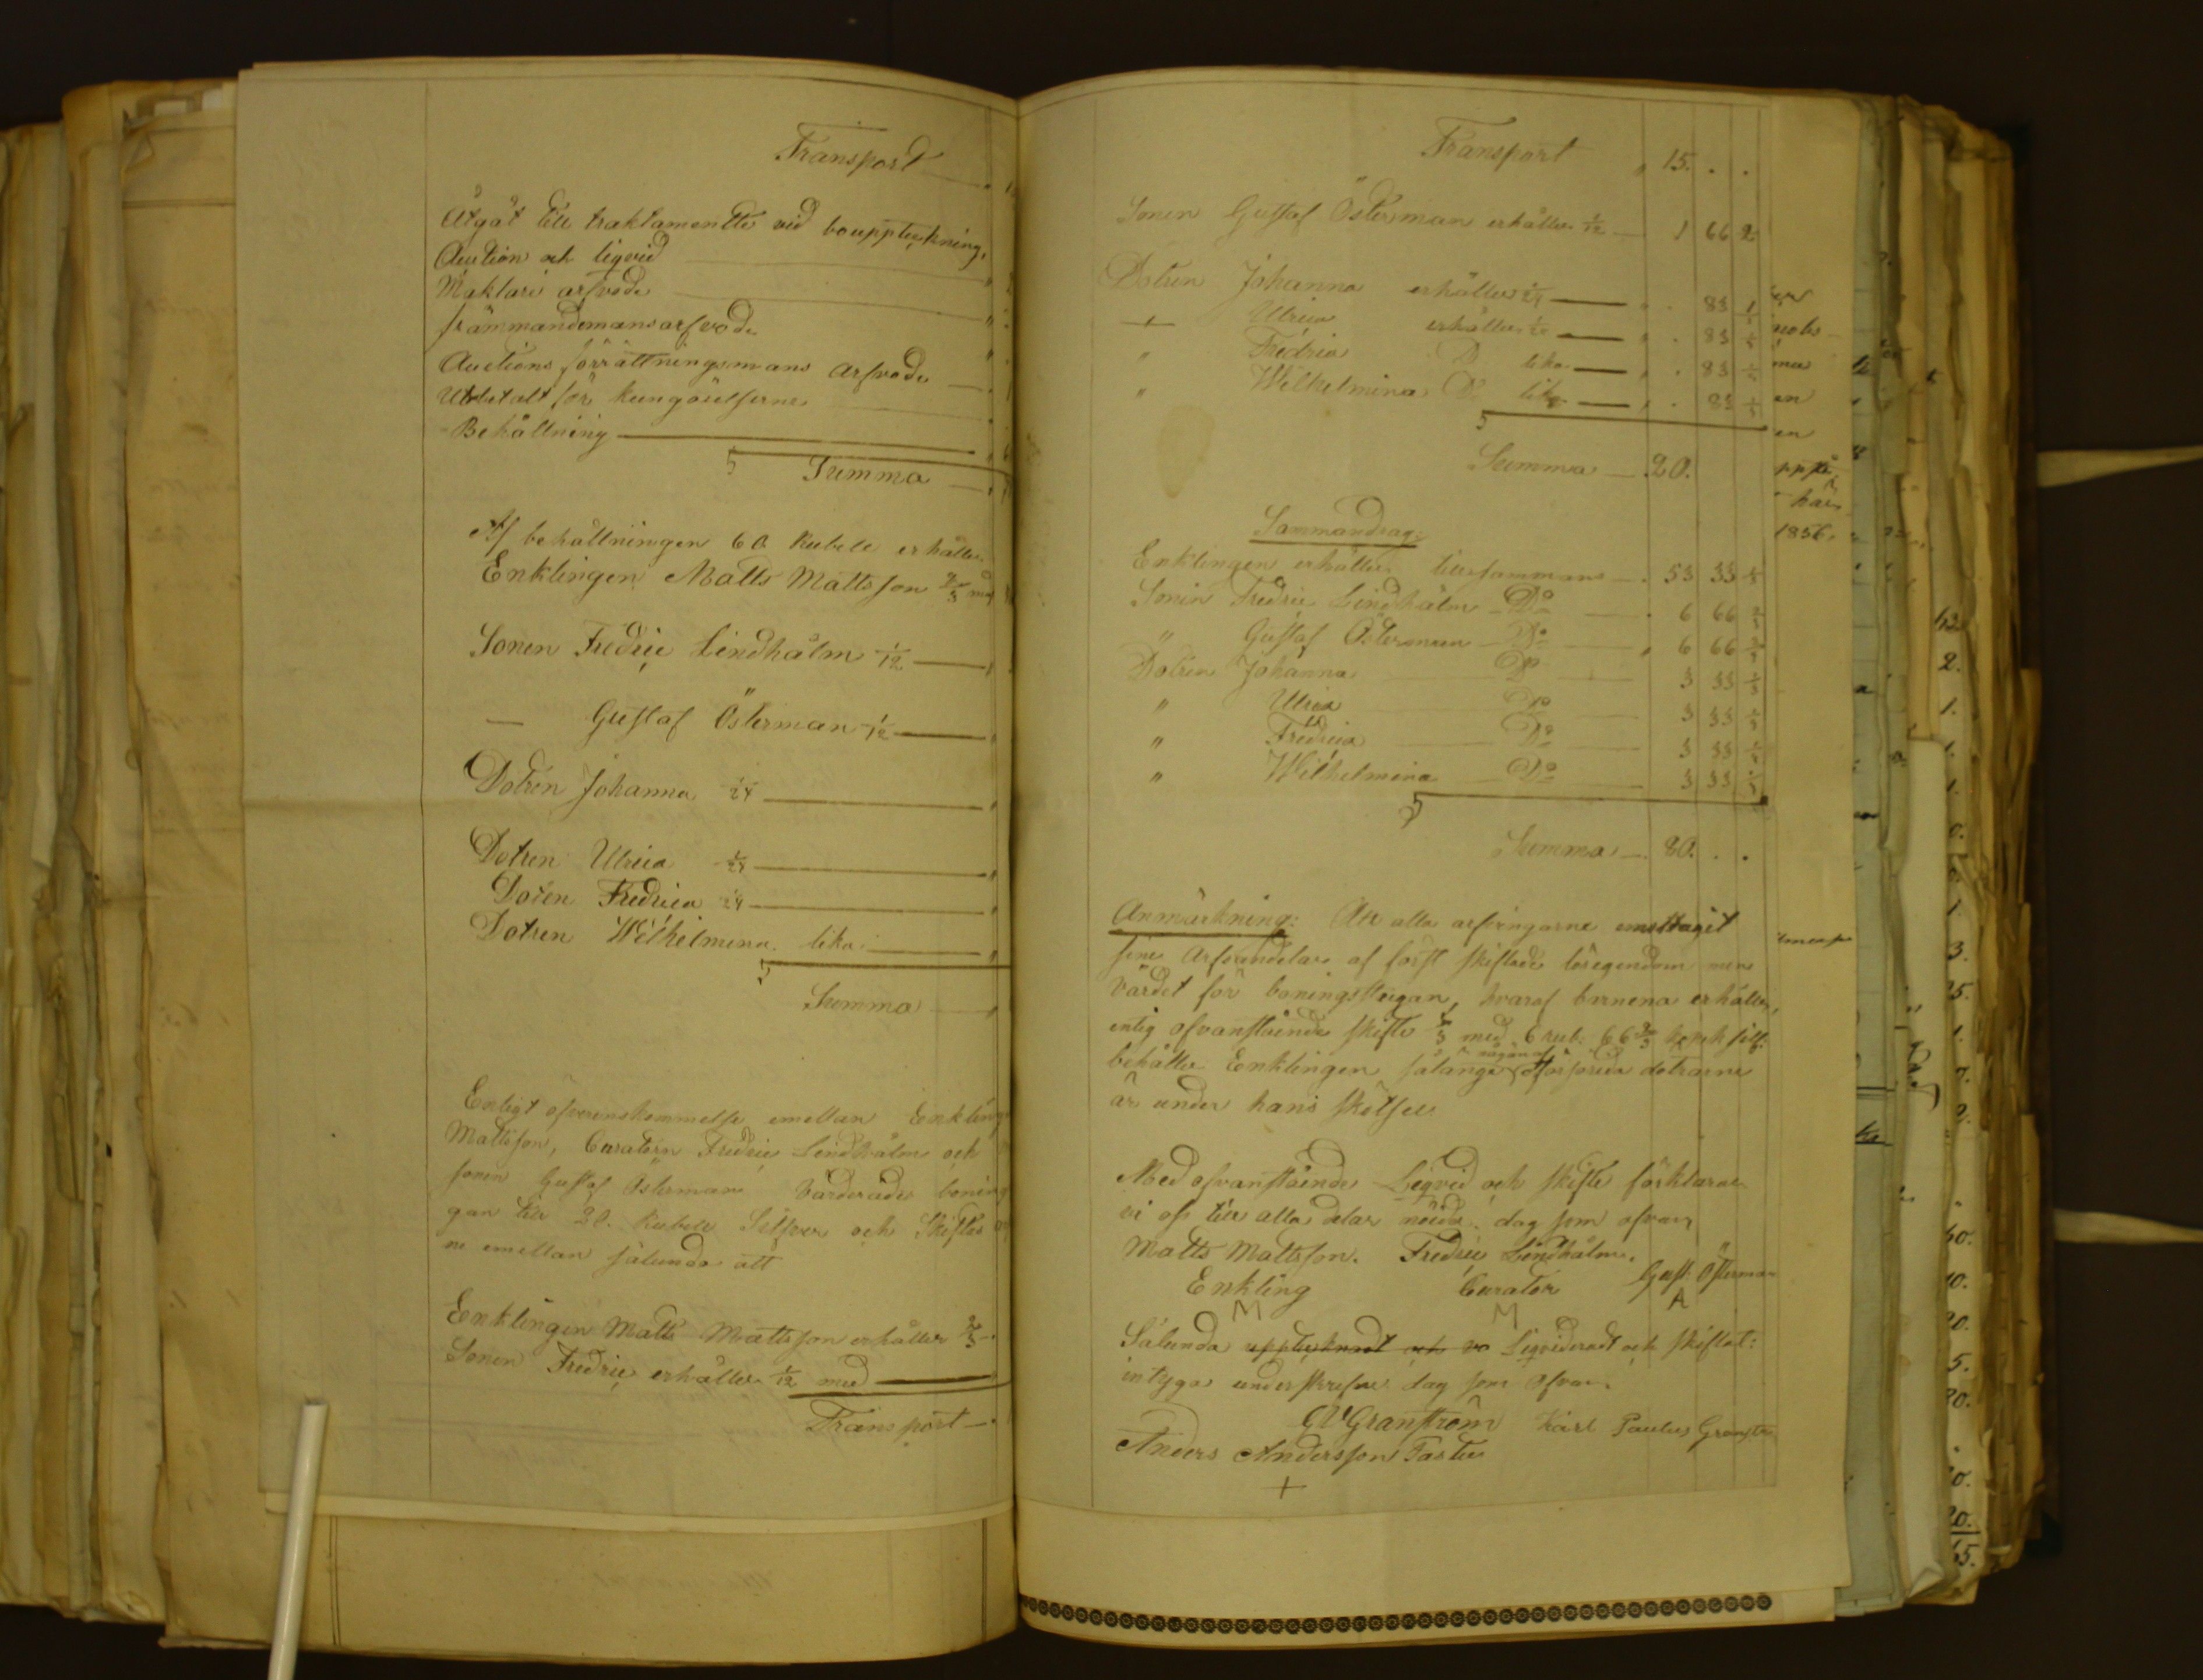 Transport
Åtgåt till traktamentte vid boupptekning,
Auction och liqvid
Mäklari arfvode
främmandemansarfvode
Auctions förrättningsmans Arfvode
Utbetalt för kungörelserne
Behållning
Summa
Af behållningen 60 Rubele erhåller
Enklingen Matts Mattsson 2/3 med
Sonen Fredric Lindhålm 1/12
— Gustaf Österman 1/12
Dotren Johanna 1/24
Dotren Ulrica 1/24
Dotren Fredrica 1/24
Dotren Wilhelmina lika
Summa
Enligt öfverenskommelse emellan Enkling
Mattsson, Curatorn Fredric Lindhålm och
sonen Gustaf Österman Värderades boning
gan till 20. Rubele Silfver och Skiftes
ne emellan sålunda att
Enklingen Matts Mattsson erhåller 2/3
Sonen Fredric erhåller 1/12 med
Transport
Transport " 15. . .
Sonen Gustaf Österman erhåller 1/12 — 1 66 2/3
Dotren Johanna erhåller 1/24 — " . 83 1/3
— Ulrica erhåller 1/24 — " . 83 1/3
" Fredrica D lika — " . 83 1/3
" Wilhelmina D lika — " . 83 1/3
Summa — 20.
Sammandrag:
Enklingen erhåller tillsammans — 53 33 1/3
Sonen Fredric Lindhålm — Do 6 66 2/3
" Gustaf Österman — Do " 6 66 2/3
Dotren Johanna Do 3 33 1/3
" Ulrica Do 3 33 1/3
" Fredrica Do 3 33 1/3
" Wilhelmina Do 3 33 1/3
Summa — 80. . .
Anmärkning: Att alla arfvingarne emottagit
sine Arfsandelar af först skiftade lösegendom men
värdet för boningsstugan, hvaraf barnena erhåller,
enlig ofvanstående skifte 1/3 med 6 rub. 66 2/3 kopek silf:
behåller Enklingen så länge någon af dotrarne
är under hans skötsel.
Med ofvanstående Liqvid och skifte förklarar
vi oss till alla delar nöjda. dag som ofvan
Matts Mattsson. Fredric Lindhålm. Gust. Österman
Enkling Curator A
M M
Sålunda upptecknadt och Liqvideradt och skiftat:
intygar underskrefne dag som ofvan.
GW Granström Karl Paulus Granström
Anders Andersson Taster
+
1856.